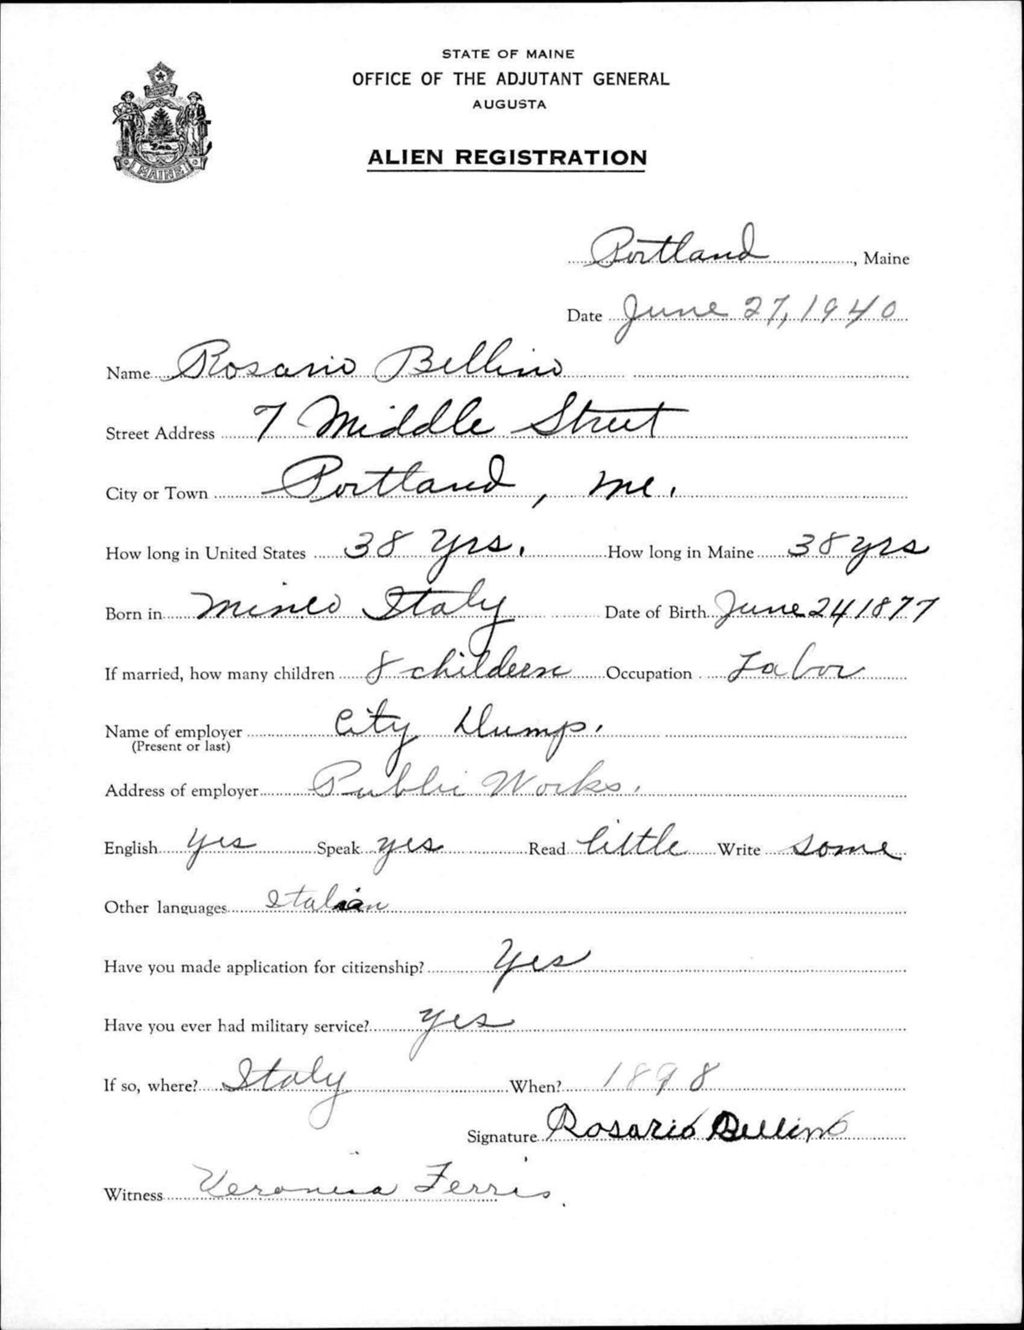 STATE OF MAINE
OFFICE OF THE ADJUTANT GENERAL
AUGUSTA
ALIEN REGISTRATION
MAINE
Portland, Maine
Date June 27, 1940
Name Rosario Bellino
Street Address 7 Middle Street
City or Town Portland, Me.
How long in United States 38 yrs. How long in Maine 38 yrs
Born in Mineo Italy Date of Birth June 24 1877
If married, how many children 8 childern Occupation Labor
Name of employer City Dump.
(Present or last)
Address of employer Public Works.
English yes Speak yes Read little Write some
Other languages Italian
Have you made application for citizenship? Yes
Have you ever had military service? yes
If so, where? Italy When? 1898
Signature Rosario Bellino
Witness Veronica Ferris.